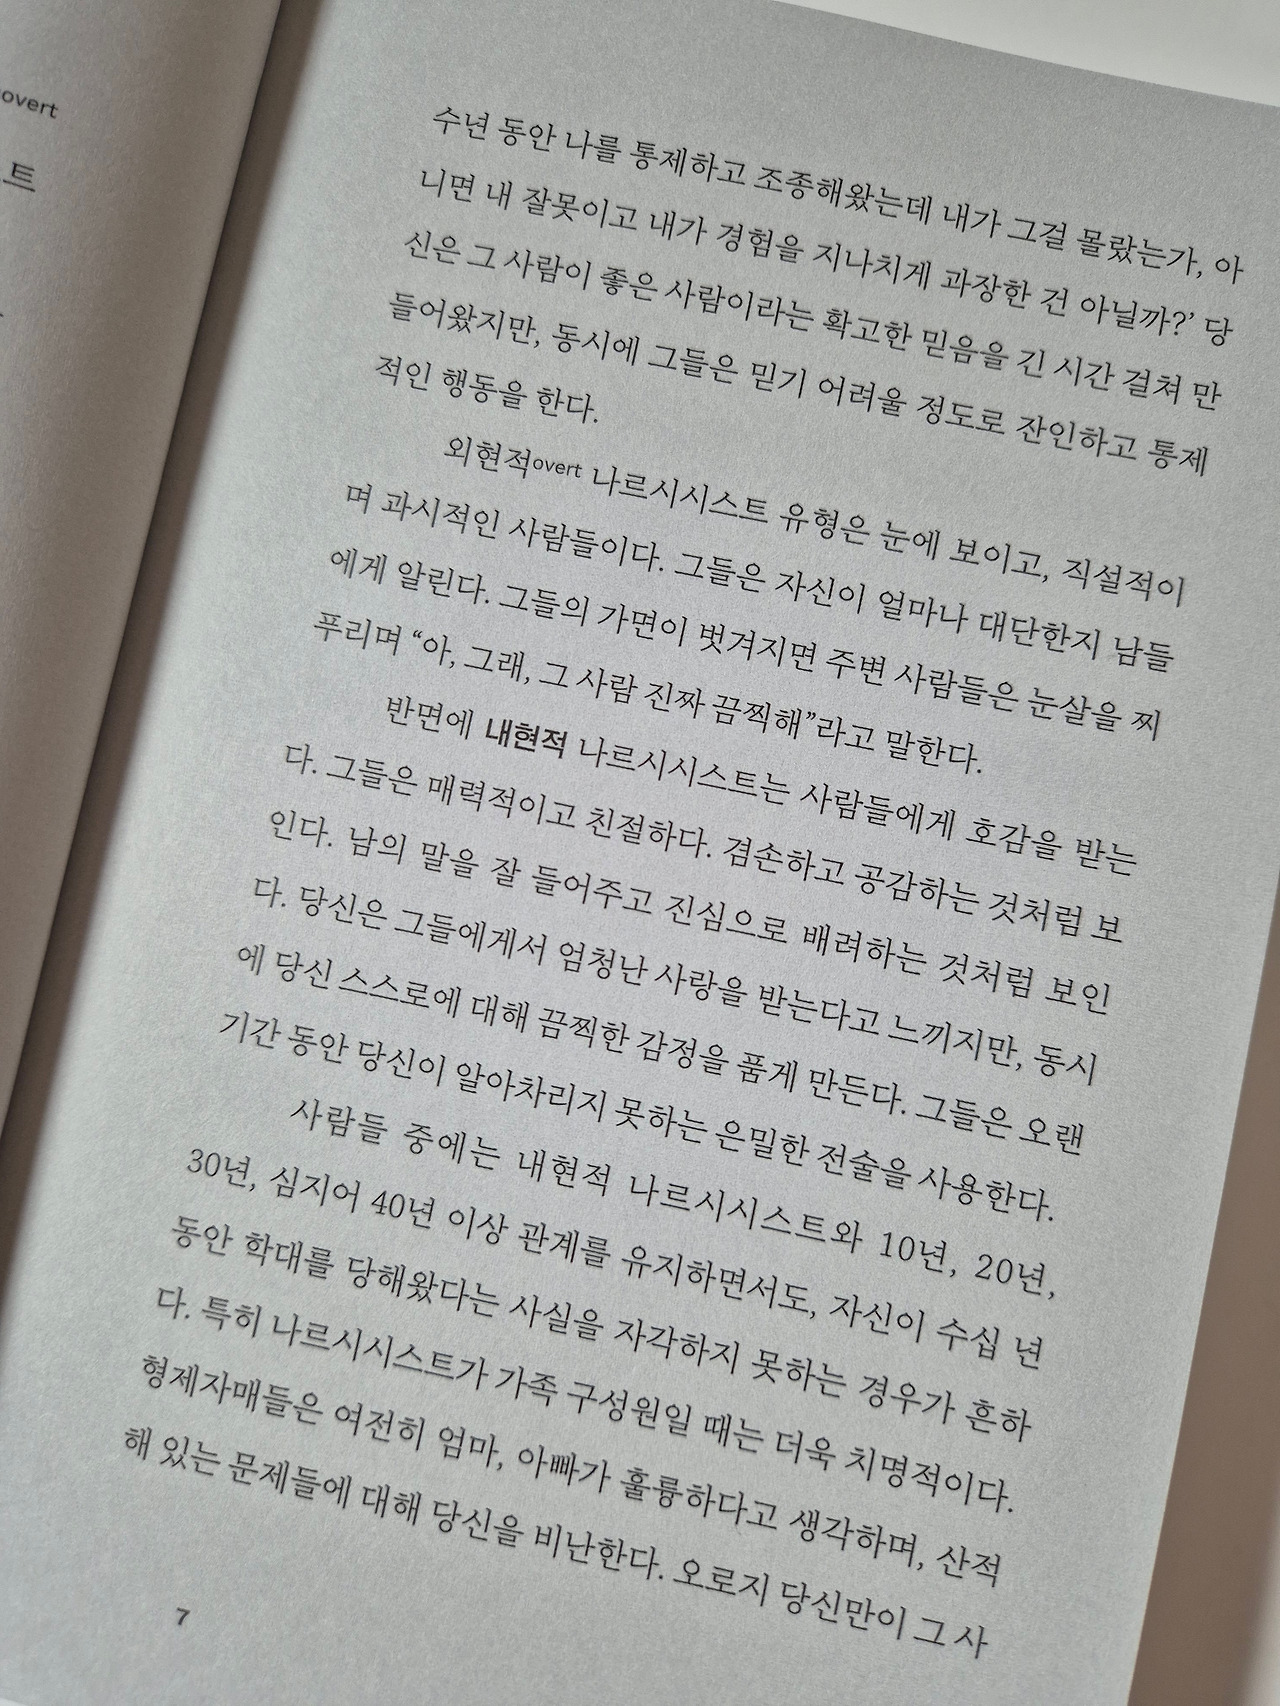 overt
스트
수년 동안 나를 통제하고 조종해왔는데 내가 그걸 몰랐는가, 아
니면 내 잘못이고 내가 경험을 지나치게 과장한 건 아닐까?’ 당
신은 그 사람이 좋은 사람이라는 확고한 믿음을 긴 시간 걸쳐 만
들어왔지만, 동시에 그들은 믿기 어려울 정도로 잔인하고 통제
적인 행동을 한다.
외현적overt 나르시시스트 유형은 눈에 보이고, 직설적이
며 과시적인 사람들이다. 그들은 자신이 얼마나 대단한지 남들
에게 알린다. 그들의 가면이 벗겨지면 주변 사람들은 눈살을 찌
푸리며 “아, 그래, 그 사람 진짜 끔찍해”라고 말한다.
반면에 내현적 나르시시스트는 사람들에게 호감을 받는
다. 그들은 매력적이고 친절하다. 겸손하고 공감하는 것처럼 보
인다. 남의 말을 잘 들어주고 진심으로 배려하는 것처럼 보인
다. 당신은 그들에게서 엄청난 사랑을 받는다고 느끼지만, 동시
에 당신 스스로에 대해 끔찍한 감정을 품게 만든다. 그들은 오랜
기간 동안 당신이 알아차리지 못하는 은밀한 전술을 사용한다.
사람들 중에는 내현적 나르시시스트와 10년, 20년,
30년, 심지어 40년 이상 관계를 유지하면서도, 자신이 수십 년
동안 학대를 당해왔다는 사실을 자각하지 못하는 경우가 흔하
다. 특히 나르시시스트가 가족 구성원일 때는 더욱 치명적이다.
형제자매들은 여전히 엄마, 아빠가 훌륭하다고 생각하며, 산적
해 있는 문제들에 대해 당신을 비난한다. 오로지 당신만이 그 사
7